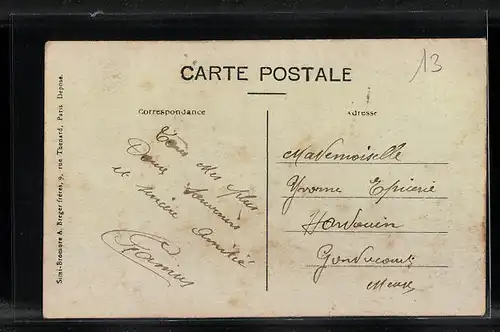 CARTE POSTALE
13
Correspondance
Adresse
Tous Mes plus
Doux Souvenirs
et sincère Amitié
Mademoiselle
Yvonne Epicerie
Hardouin
Gondrecourt
Meuse
Simi-Bromure A. Breger frères, 9, rue Thenard, Paris Déposé.